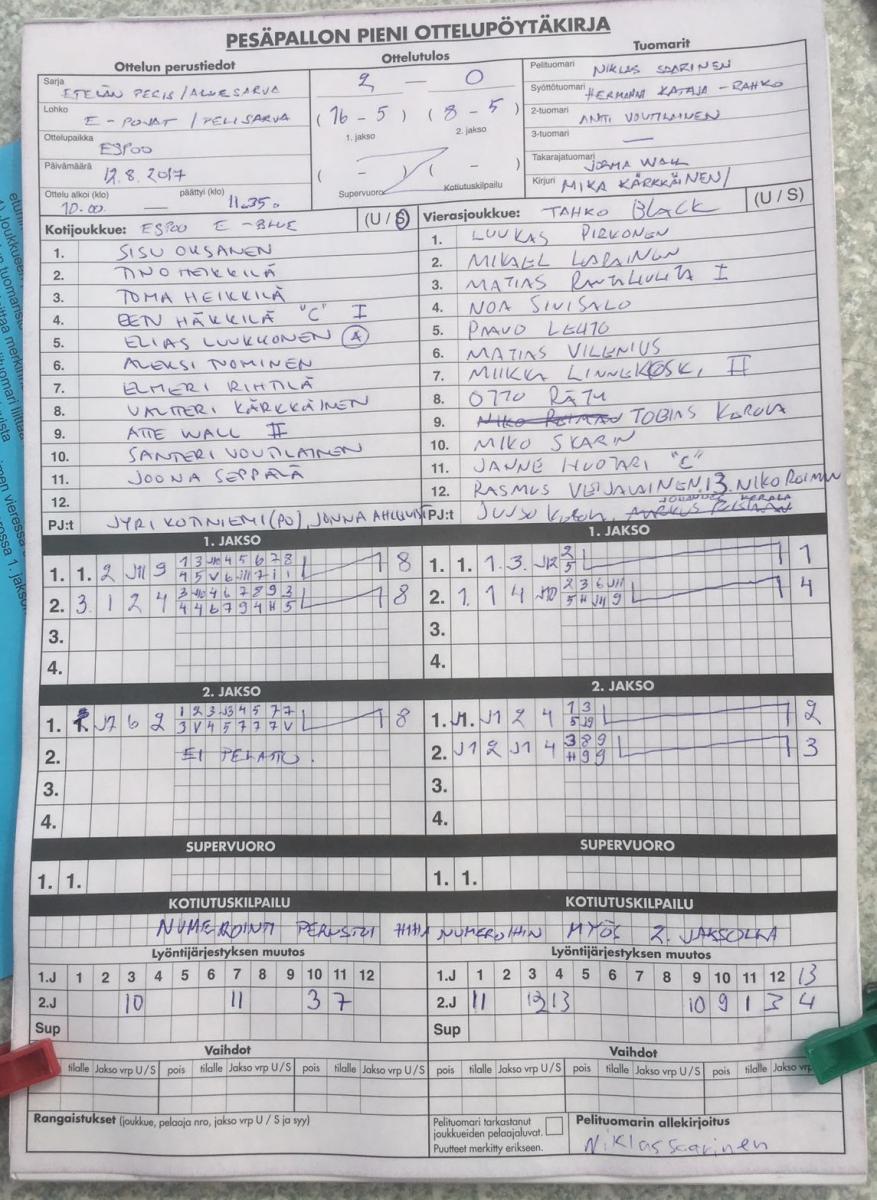 PESÄPALLON PIENI OTTELUPÖYTÄKIRJA
Ottelun perustiedot Ottelutulos Tuomarit
Sarja ETELÄN PESIS/ALUESARJA
Lohko E-POJAT / PELISARJA
Ottelupaikka ESPOO
Päivämäärä 12.8.2017
Ottelu alkoi (klo) 10.00 päättyi (klo) 11.35.
2 - 0
(16 - 5) (8 - 5)
1. jakso 2. jakso
( - ) ( - )
Supervuoro Kotiutuskilpailu
Pelituomari NIKLAS SAARINEN
Syöttötuomari HERMANNI KATAJA-RAHKO
2-tuomari ANTI VOUTILAINEN
3-tuomari —
Takarajatuomari JORMA WALL
Kirjuri MIKA KÄRKKÄINEN/
Kotijoukkue: ESPOO E-BLUE (U / S)
1. SISU OKSANEN
2. TINO HEIKKILÄ
3. TOMA HEIKKILÄ
4. EEN HÄKKILÄ "C" I
5. ELIAS LUUKKONEN A
6. ALEKSI TUOMINEN
7. ELMERI RIHTILÄ
8. VALTTERI KÄRKKÄINEN
9. ATTE WALL II
10. SANTERI VOUTILAINEN
11. JOONA SEPPÄLÄ
12.
PJ:t JYRI KOTINIEMI (PO), JONNA AHLQVIST
Vierasjoukkue: TAHKO BLACK (U / S)
1. LUUKAS PIRKONEN
2. MIKAEL
3. MATIAS I
4. NOA SIVISALO
5. PAAVO LEHTO
6. MATIAS VILENIUS
7. MIIKKA LINNEKOSKI II
8. OTTO RÄTY
9. TOBIAS KEROLA
10. MIKO SKARIN
11. JANNE HUOTARI "C"
12. RASMUS VEIJALAINEN, 13. NIKO ROIMAN
PJ:t
1. JAKSO
1. 1. 2 J11 9 8
2. 3 1 2 4 8
3.
4.
1. JAKSO
1. 1. 1. 3. J12 2 1
5
2. 1 1 4 J10 2 3 6 J11 4
5 H J11 9
3.
4.
2. JAKSO
1. J7 6 2 1 2 3 J3 4 5 7 7 8
3 V 4 5 7 7 7 V
2. EI PELATTU.
3.
4.
2. JAKSO
1. J1. J1 2 4 1 3 2
5 J9
2. J1 2 J1 4 3 8 9 3
H 9 9
3.
4.
SUPERVUORO
1. 1.
SUPERVUORO
1. 1.
KOTIUTUSKILPAILU KOTIUTUSKILPAILU
NUMEROINTI PERUSTUI NUMEROIHIN MYÖS 2. JAKSOLLA
Lyöntijärjestyksen muutos
1.J 1 2 3 4 5 6 7 8 9 10 11 12
2.J 10 11 3 7
Sup
Lyöntijärjestyksen muutos
1.J 1 2 3 4 5 6 7 8 9 10 11 12 13
2.J 11 12 13 10 9 1 3 4
Sup
Vaihdot Vaihdot
tilalle Jakso vrp U / S pois tilalle Jakso vrp U / S pois tilalle Jakso vrp U / S pois tilalle Jakso vrp U / S pois tilalle Jakso vrp U / S pois tilalle Jakso vrp
Rangaistukset (joukkue, pelaaja nro, jakso vrp U / S ja syy)
Pelituomari tarkastanut
joukkueiden pelaajaluvat.
Puutteet merkitty erikseen.
Pelituomarin allekirjoitus
Niklas Saarinen